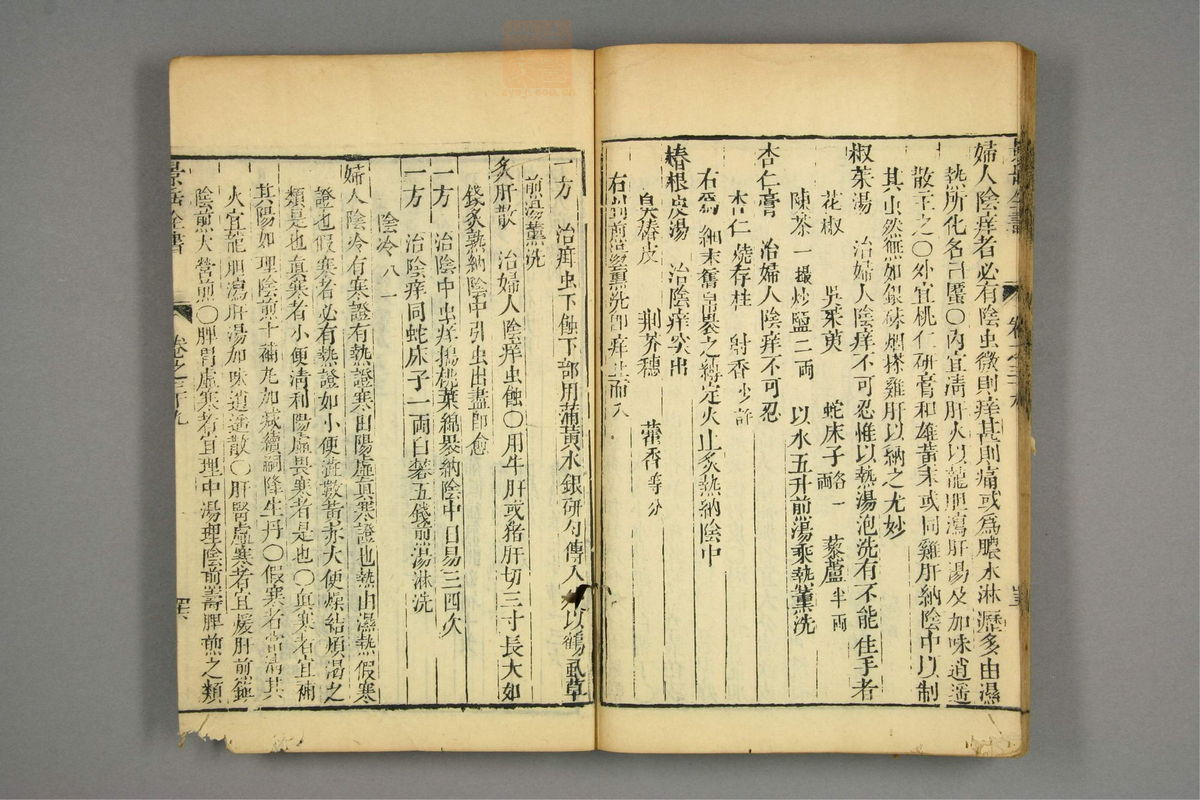 婦人陰痒者必有陰虫微則痒甚則痛或爲膿水淋瀝多由濕
熱所化名曰䘌○內宜清肝火以龍胆瀉肝湯及加味逍遥
散主之○外宜桃仁研膏和雄黃末或同雞肝納陰中以制
其虫然無如銀硃烟搽雞肝以納之尤妙
椒茱湯 治婦人陰痒不可忍惟以熱湯泡洗有不能住手者
花椒 吳茱萸 蛇床子各一両 藜蘆半両
陳茶一撮 炒鹽二両 以水五升煎湯乘熱薰洗
杏仁膏 治婦人陰痒不可忍
杏仁燒存性 麝香少許
右爲細末舊帛裹之縛定火上炙熱納陰中
椿根皮湯 治陰痒突出
臭椿皮 荆芥穗 藿香等分
右剉煎湯薰洗即痒止而入
一方 治疳虫下蝕下部用蒲黃水銀研勻傅入 以鶴虱草
煎湯薰洗
炙肝散 治婦人陰痒虫蝕○用牛肝或猪肝切三寸長大如
錢炙熱納陰中引虫出盡即愈
一方 治陰中虫痒搗桃葉綿裹納陰中日易三四次
一方 治陰痒同蛇床子一両白礬五錢煎湯淋洗
陰冷八一
婦人陰冷有寒證有熱證寒由陽虛眞寒證也熱由濕熱假寒
證也假寒者必有熱證如小便澁數黃赤大便燥結煩渴之
類是也眞寒者小便清利陽虛畏寒者是也○眞寒者宜補
其陽如理陰煎十補丸加減續嗣降生丹○假寒者當清其
火宜龍胆瀉肝湯加味逍遥散○肝腎虛寒者宜煖肝煎鎮
陰煎大營煎○脾胃虛寒者宜理中湯理陰煎壽脾煎之類
景岳全書 卷之三十九